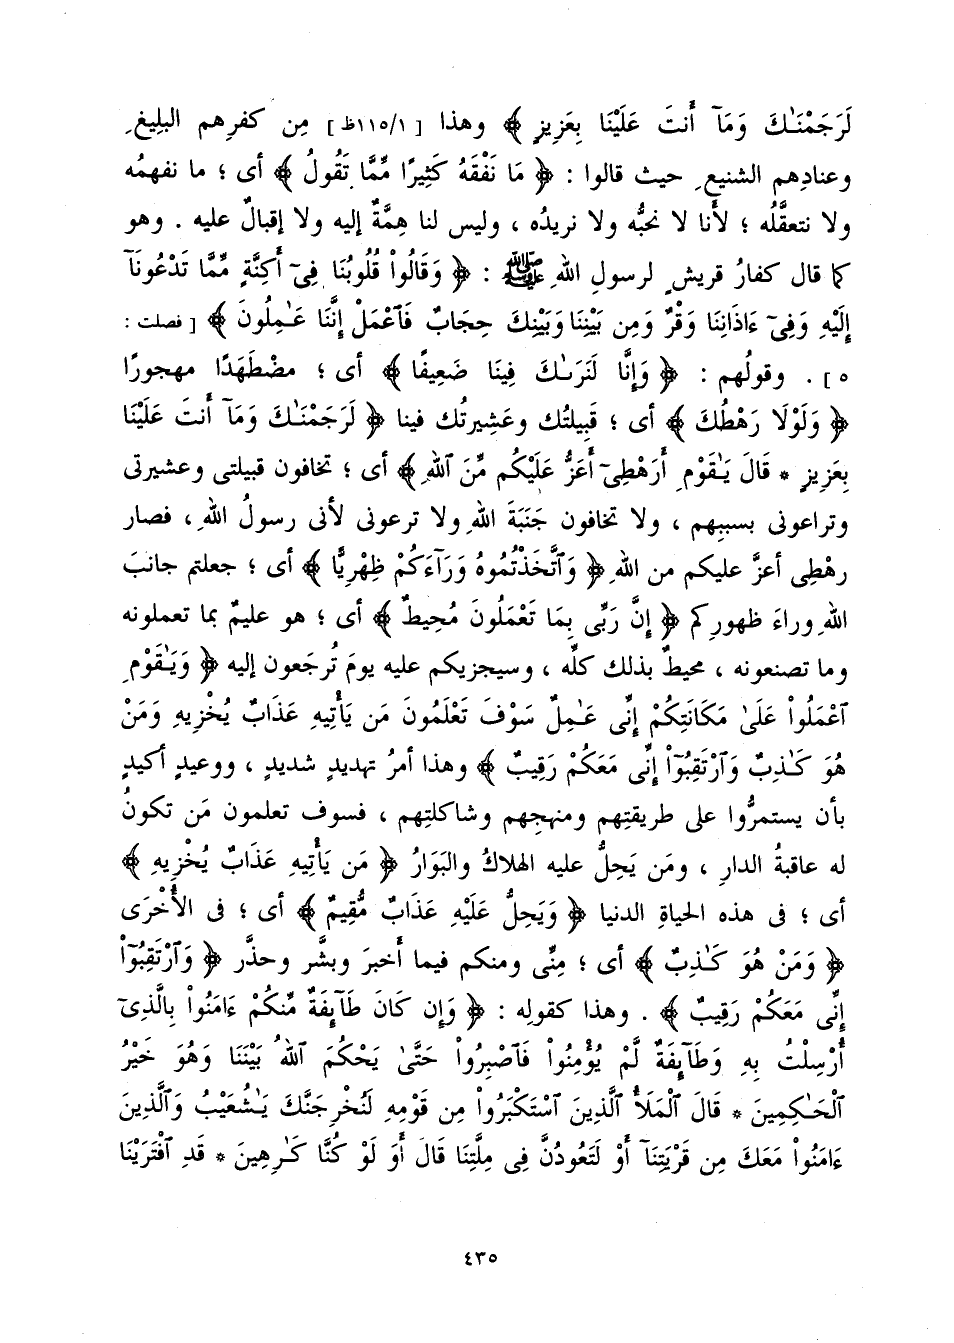 لَرَجَمْنَٰكَ وَمَآ أَنتَ عَلَيْنَا بِعَزِيزٍ ﴾ وهذا [ ١/١١٥ظ ] مِن كفرِهم البليغِ
وعنادِهم الشنيعِ حيث قالوا : ﴿ مَا نَفْقَهُ كَثِيرًا مِّمَّا تَقُولُ ﴾ أى ؛ ما نفهمُه
ولا نتعقَّلُه ؛ لأنا لا نحبُّه ولا نريدُه ، وليس لنا هِمَّةٌ إليه ولا إقبالٌ عليه . وهو
كما قال كفارُ قريشٍ لرسولِ اللهِ ﷺ : ﴿ وَقَالُوا۟ قُلُوبُنَا فِىٓ أَكِنَّةٍ مِّمَّا تَدْعُونَآ
إِلَيْهِ وَفِىٓ ءَاذَانِنَا وَقْرٌ وَمِن بَيْنِنَا وَبَيْنِكَ حِجَابٌ فَٱعْمَلْ إِنَّنَا عَٰمِلُونَ ﴾ [ فصلت :
٥ ] . وقولُهم : ﴿ وَإِنَّا لَنَرَىٰكَ فِينَا ضَعِيفًا ﴾ أى ؛ مضْطَهَدًا مهجورًا
﴿ وَلَوْلَا رَهْطُكَ ﴾ أى ؛ قَبِيلتُك وعَشِيرتُك فينا ﴿ لَرَجَمْنَٰكَ وَمَآ أَنتَ عَلَيْنَا
بِعَزِيزٍ * قَالَ يَٰقَوْمِ أَرَهْطِىٓ أَعَزُّ عَلَيْكُم مِّنَ ٱللَّهِ ﴾ أى ؛ تخافون قبيلتى وعشيرتى
وتراعونى بسببِهم ، ولا تخافون جَنَبَةَ اللهِ ولا ترعونى لأنى رسولُ اللهِ ، فصار
رهْطِى أعزَّ عليكم من اللهِ ﴿ وَٱتَّخَذْتُمُوهُ وَرَآءَكُمْ ظِهْرِيًّا ﴾ أى ؛ جعلتم جانبَ
اللهِ وراءَ ظهورِكم ﴿ إِنَّ رَبِّى بِمَا تَعْمَلُونَ مُحِيطٌ ﴾ أى ؛ هو عليمٌ بما تعملونه
وما تصنعونه ، محيطٌ بذلك كلِّه ، وسيجزيكم عليه يومَ تُرجَعون إليه ﴿ وَيَٰقَوْمِ
ٱعْمَلُوا۟ عَلَىٰ مَكَانَتِكُمْ إِنِّى عَٰمِلٌ سَوْفَ تَعْلَمُونَ مَن يَأْتِيهِ عَذَابٌ يُخْزِيهِ وَمَنْ
هُوَ كَٰذِبٌ وَٱرْتَقِبُوٓا۟ إِنِّى مَعَكُمْ رَقِيبٌ ﴾ وهذا أمرُ تهديدٍ شديدٍ ، ووعيدٍ أكيدٍ
بأن يستمرُّوا على طريقتِهم ومنهجِهم وشاكلتِهم ، فسوف تعلمون مَن تكونُ
له عاقبةُ الدارِ ، ومَن يَحِلُّ عليه الهلاكُ والبَوَارُ ﴿ مَن يَأْتِيهِ عَذَابٌ يُخْزِيهِ ﴾
أى ؛ فى هذه الحياةِ الدنيا ﴿ وَيَحِلُّ عَلَيْهِ عَذَابٌ مُّقِيمٌ ﴾ أى ؛ فى الأُخْرَى
﴿ وَمَنْ هُوَ كَٰذِبٌ ﴾ أى ؛ مِنِّى ومنكم فيما أَخبرَ وبشَّر وحذَّر ﴿ وَٱرْتَقِبُوٓا۟
إِنِّى مَعَكُمْ رَقِيبٌ ﴾ . وهذا كقولِه : ﴿ وَإِن كَانَ طَآئِفَةٌ مِّنكُمْ ءَامَنُوا۟ بِٱلَّذِىٓ
أُرْسِلْتُ بِهِ وَطَآئِفَةٌ لَّمْ يُؤْمِنُوا۟ فَٱصْبِرُوا۟ حَتَّىٰ يَحْكُمَ ٱللَّهُ بَيْنَنَا وَهُوَ خَيْرُ
ٱلْحَٰكِمِينَ * قَالَ ٱلْمَلَأُ ٱلَّذِينَ ٱسْتَكْبَرُوا۟ مِن قَوْمِهِ لَنُخْرِجَنَّكَ يَٰشُعَيْبُ وَٱلَّذِينَ
ءَامَنُوا۟ مَعَكَ مِن قَرْيَتِنَآ أَوْ لَتَعُودُنَّ فِى مِلَّتِنَا قَالَ أَوَ لَوْ كُنَّا كَٰرِهِينَ * قَدِ ٱفْتَرَيْنَا
٤٣٥